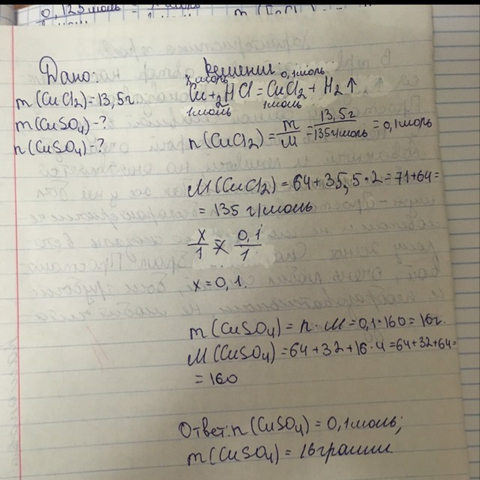 0,125 моль
Дано:
Решения
m(CuCl2)=13,5г
m(CuSO4)-?
n(CuSO4)-?
x моль 0,1моль
Cu+2HCl=CuCl2+H2↑
1моль 1моль
n(CuCl2)=m/M=13,5г/135г/моль=0,1моль
M(CuCl2)=64+35,5·2=71+64=
=135 г/моль
x/1 = 0,1/1
x=0,1.
m(CuSO4)=n·M=0,1·160=16г.
M(CuSO4)=64+32+16·4=64+32+64=
=160
Ответ:n(CuSO4)=0,1моль;
m(CuSO4)=16грамм.